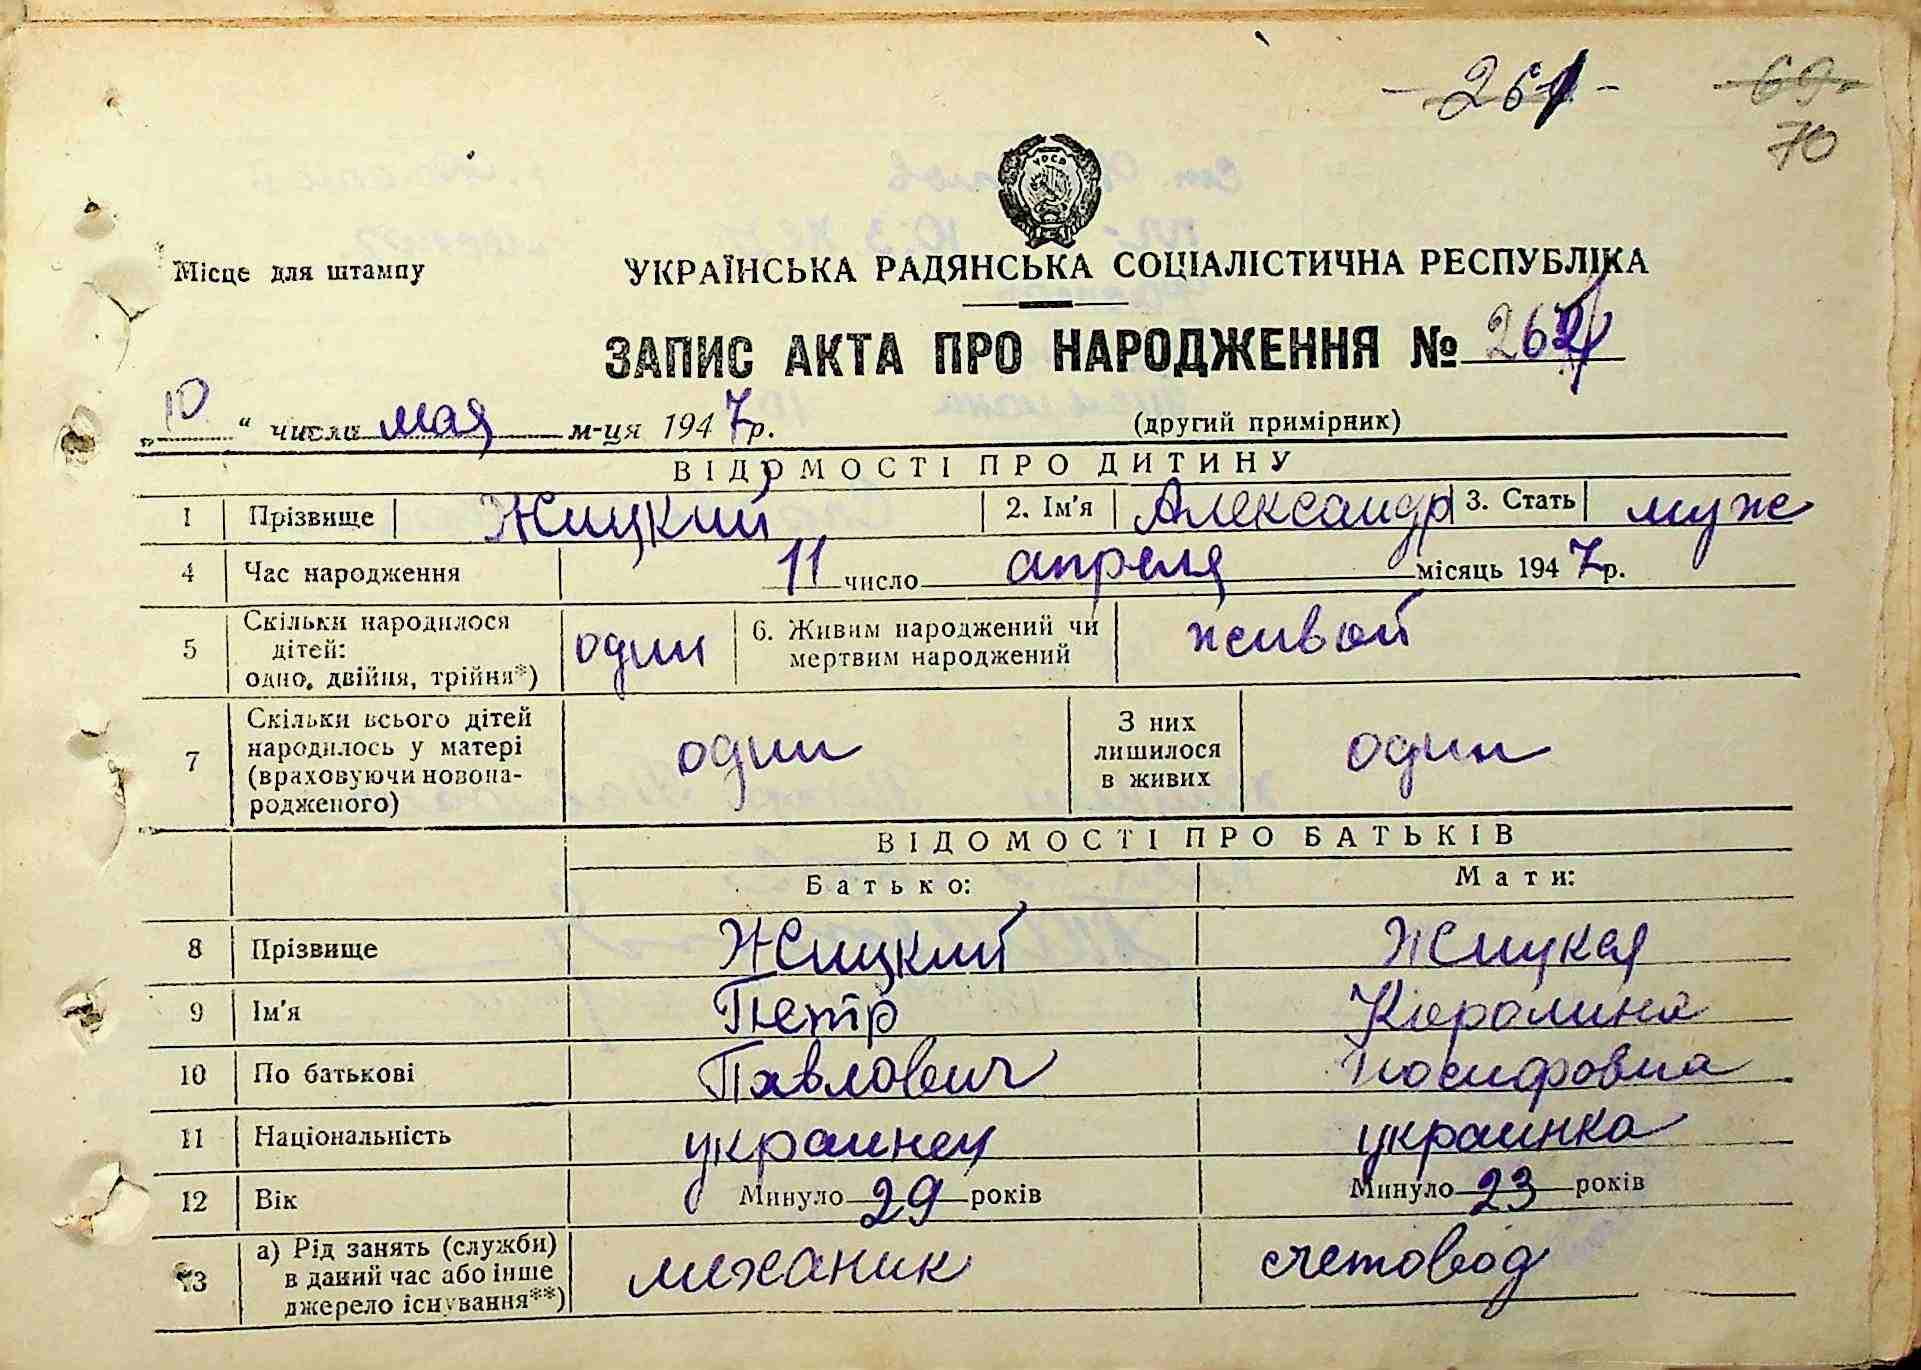 70
УРСР
Місце для штампу
УКРАЇНСЬКА РАДЯНСЬКА СОЦІАЛІСТИЧНА РЕСПУБЛІКА
ЗАПИС АКТА ПРО НАРОДЖЕННЯ №
„10“ числа мая м-ця 1947 р. (другий примірник)
ВІДОМОСТІ ПРО ДИТИНУ
1 Прізвище Жицкий 2. Ім'я Александр 3. Стать муж
4 Час народження 11 число апреля місяць 1947 р.
5 Скільки народилося дітей: одно, двійня, трійня*) один 6. Живим народжений чи мертвим народжений живой
7 Скільки всього дітей народилось у матері (враховуючи новонародженого) один З них лишилося в живих один
ВІДОМОСТІ ПРО БАТЬКІВ
Батько: Мати:
8 Прізвище Жицкий Жицкая
9 Ім'я Петр Каролина
10 По батькові Павлович Иосифовна
11 Національність украинец украинка
12 Вік Минуло 29 років Минуло 23 років
13 а) Рід занять (служби) в даний час або інше джерело існування**) механик счетовод